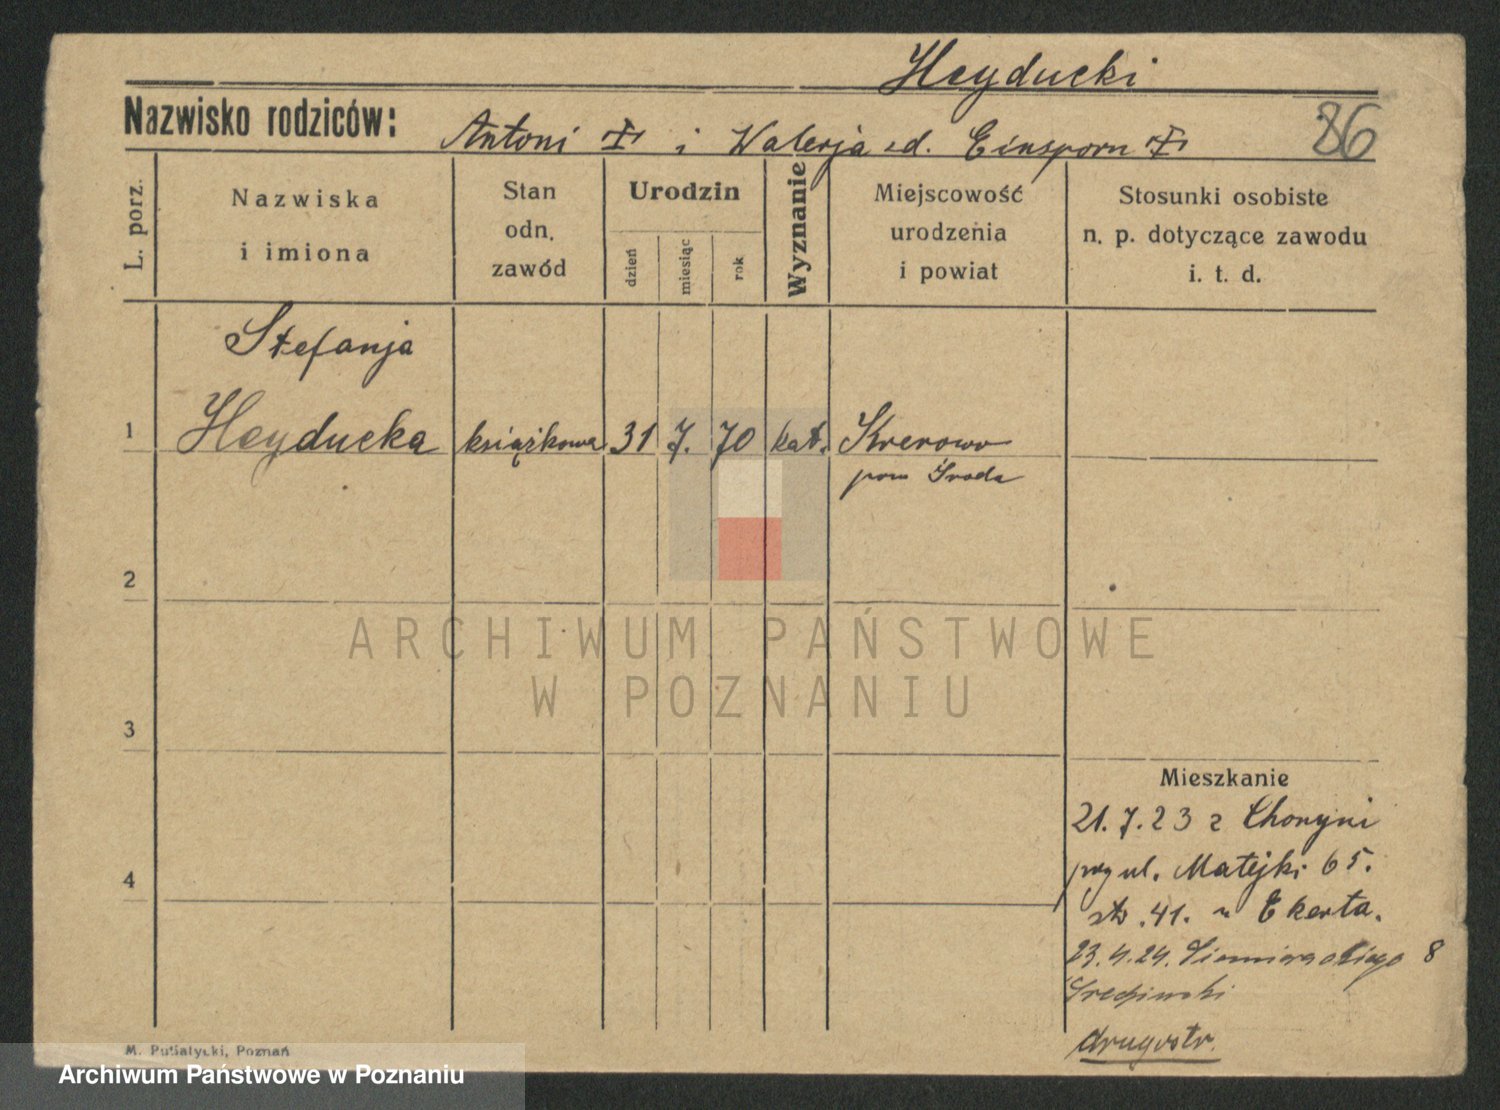 Heyducki
Nazwisko rodziców: Antoni i Walerja zd. Einsporn
86
L. porz.
Nazwiska
i imiona
Stan
odn.
zawód
Urodzin
dzień
miesiąc
rok
Wyznanie
Miejscowość
urodzenia
i powiat
Stosunki osobiste
n. p. dotyczące zawodu
i. t. d.
Stefanja
1 Heyducka książkowa 31 7. 70 kat. Krerowo
pow Środa
2
ARCHIWUM PAŃSTWOWE
W POZNANIU
3
4
Mieszkanie
21.7.23 z Choryni
przy ul. Matejki 65.
str. 41. u Ekerta.
23.4.24. Siemiradzkiego 8
drugostr.
M. Putiatycki, Poznań
Archiwum Państwowe w Poznaniu